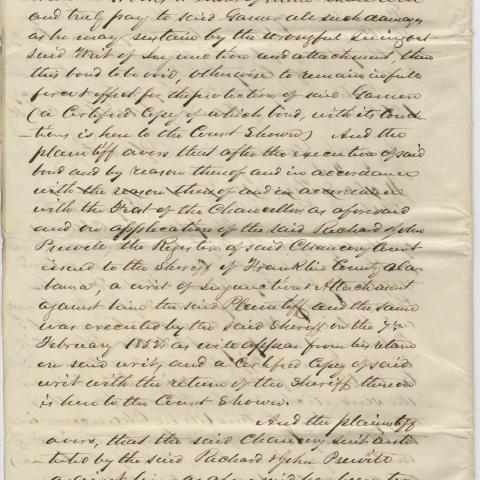 and truly pay to said Gamer all such damages
as he may sustain by the wrongful suing out
said Writ of Injunction and attachment, then
this bond to be void, otherwise to remain in full
force & effect for the protection of said Gamer
(a Certified Copy of which bond, with its condi-
-tions is here to the Court Shown) And the
plaintiff avers that after the execution of said
bond and by reason thereof and in accordance
with the reason thereof and in accordance
with the Fiat of the Chancellor as aforesaid
and on application of the said Richard & John
Prewitt the Register of said Chancery Court
issued to the Sheriff of Franklin County Ala-
bama, a writ of Injunction & Attachment
against him the said Plaintiff and the same
was executed by the said Sheriff on the 7th
February 1854 as will appear from his return
on said writ, and a Certified Copy of said
writ with the return of the Sheriff thereon
is here to the Court Shown.
And the plaintiff
avers, that the said Chancery suit insti-
-tuted by the said Richard & John Prewitt